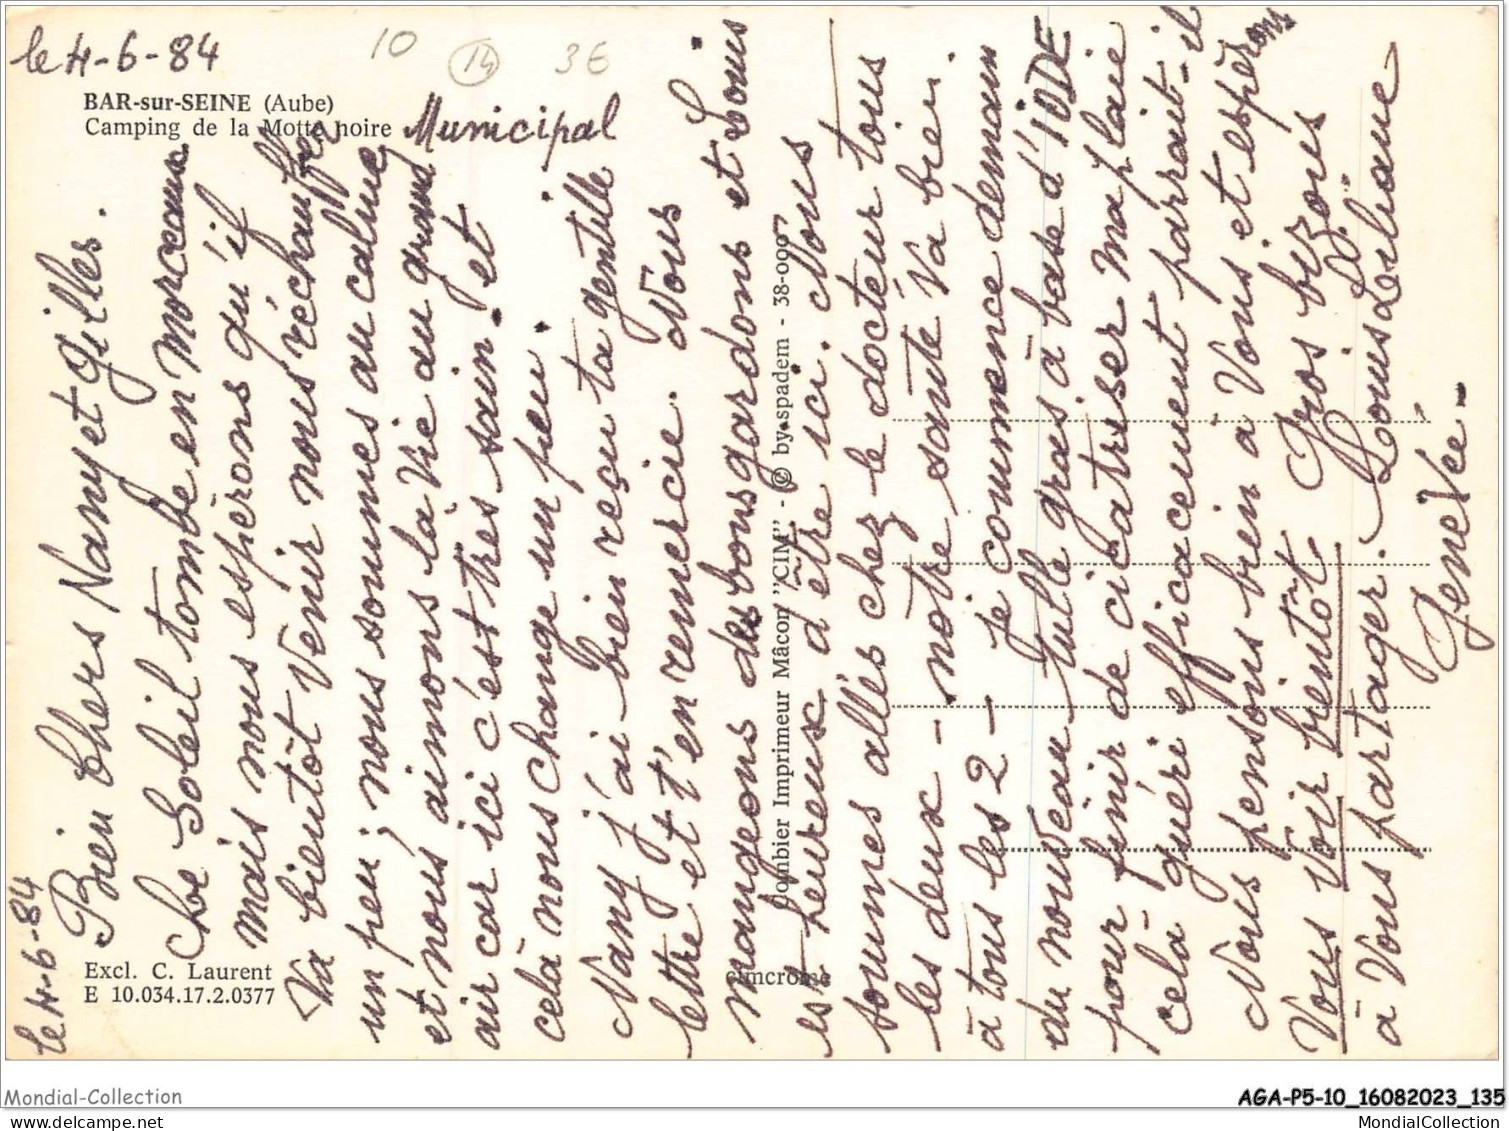 le 4-6-84
10
14
3€
BAR-sur-SEINE (Aube)
Camping de la Motte noire Municipal
le 4-6-84
Bien Chers Nany et Gilles.
Che Soleil tombe en morceaux
mais nous espèrons qu'il
va bientôt venir nous réchauffer
un peu, nous sommes au calme
et nous aimons la vie au grand
air car ici c'est très sain. et
celà nous change un peu.
Nany j'ai bien reçu ta gentille
lettre et t'en remercie. Nous
mangeons des bons gardons et Louis
est heureux d'être ici. Nous
sommes allés chez le docteur tous
les deux - notre santé va bien.
à tous les 2 - Je commence demain
du nouveau tulle gras à base d'IODE
pour finir de cicatriser ma plaie
celà guéri efficacement parrait-il
Nous pensons bien à Vous et espèrons
Vous voir bientôt. Gros bizous
à Vous partager. Louis
Geneve -
Excl. C. Laurent
E 10.034.17.2.0377
cimcrome
Combier Imprimeur Mâcon "CIM" - © by spadem - 38-099
Mondial-Collection
AGA-P5-10_16082023_135
www.delcampe.net
MondialCollection